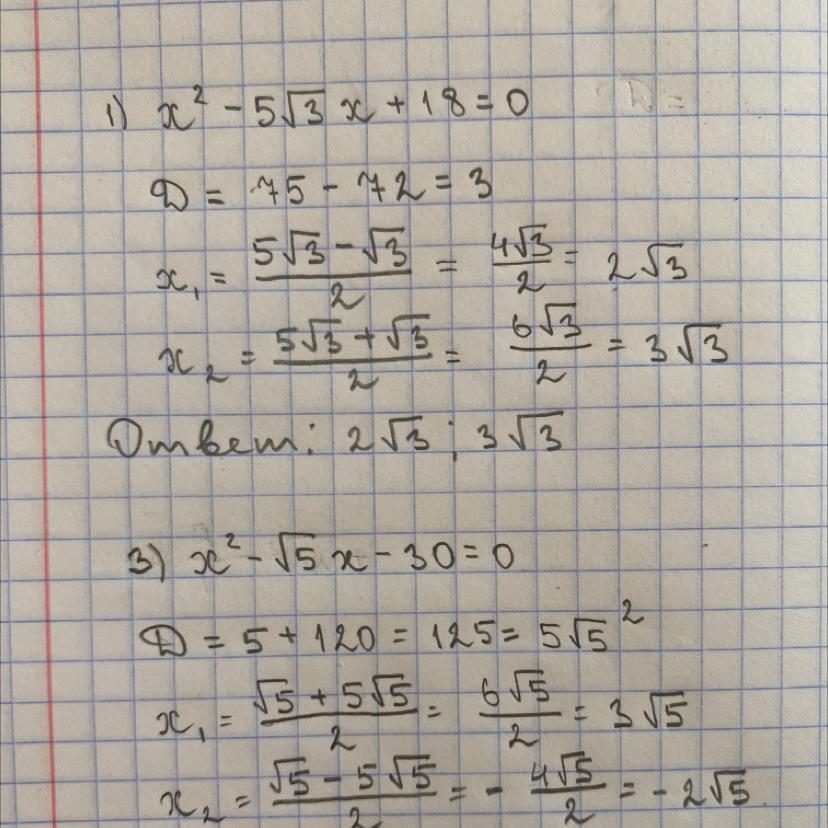 1) x² - 5√3 x + 18 = 0
D = 75 - 72 = 3
x₁ = (5√3 - √3)/2 = 4√3/2 = 2√3
x₂ = (5√3 + √3)/2 = 6√3/2 = 3√3
Ответ: 2√3 ; 3√3
3) x² - √5 x - 30 = 0
D = 5 + 120 = 125 = 5√5²
x₁ = (√5 + 5√5)/2 = 6√5/2 = 3√5
x₂ = (√5 - 5√5)/2 = - 4√5/2 = - 2√5